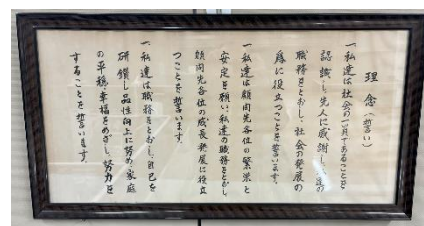 理念(誓い)
一、私達は社会の一員であることを
認識し、先人に感謝し、私達の
職務をとおし、社会の発展の
為に役立つことを誓います。
一、私達は顧問先各位の繁栄と
安定を願い、私達の職務をとおし、
顧問先各位の成長発展に役立
つことを誓います。
一、私達は職務をとおし、自己を
研鑽し品性向上に努め、家庭
の平穏、幸福をめざし、努力を
することを誓います。